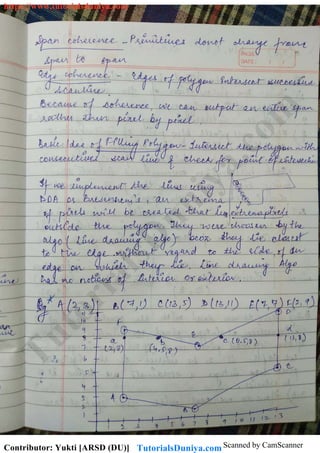 https://www.tutorialsduniya.com
Span coherence - Primitives donot change from
span to span
PAGE:
DATE: / /
Edge coherence: - Edges of polygon Intersect successive
scanline.
Because of coherence, we can output an entire span
rather than pixel by pixel.
Basic Idea of Filling Polygon- Intersect the polygon with
consecutives scan line & check for point of intersection
If we implement the line using
DDA or Bresenham's, an extrema
of pixels will be created that lie extremapixels
outside the polygon. They were choosen by the
algo (line drawing algo) bcoz they lie closest
to the edge without regard to the side of an
edge on which they lie, line drawing Algo
has no notions of Interior or exterior.
Eg A (2, 3) B (7, 1) C (13, 5) D (13, 11) E (7, 7) F (2, 9)
F
D
a
(2, 8)
b
(4, 8)
E
c
d
(13, 8)
C
A
B
Contributor: Yukti [ARSD (DU)] TutorialsDuniya.com Scanned by CamScanner